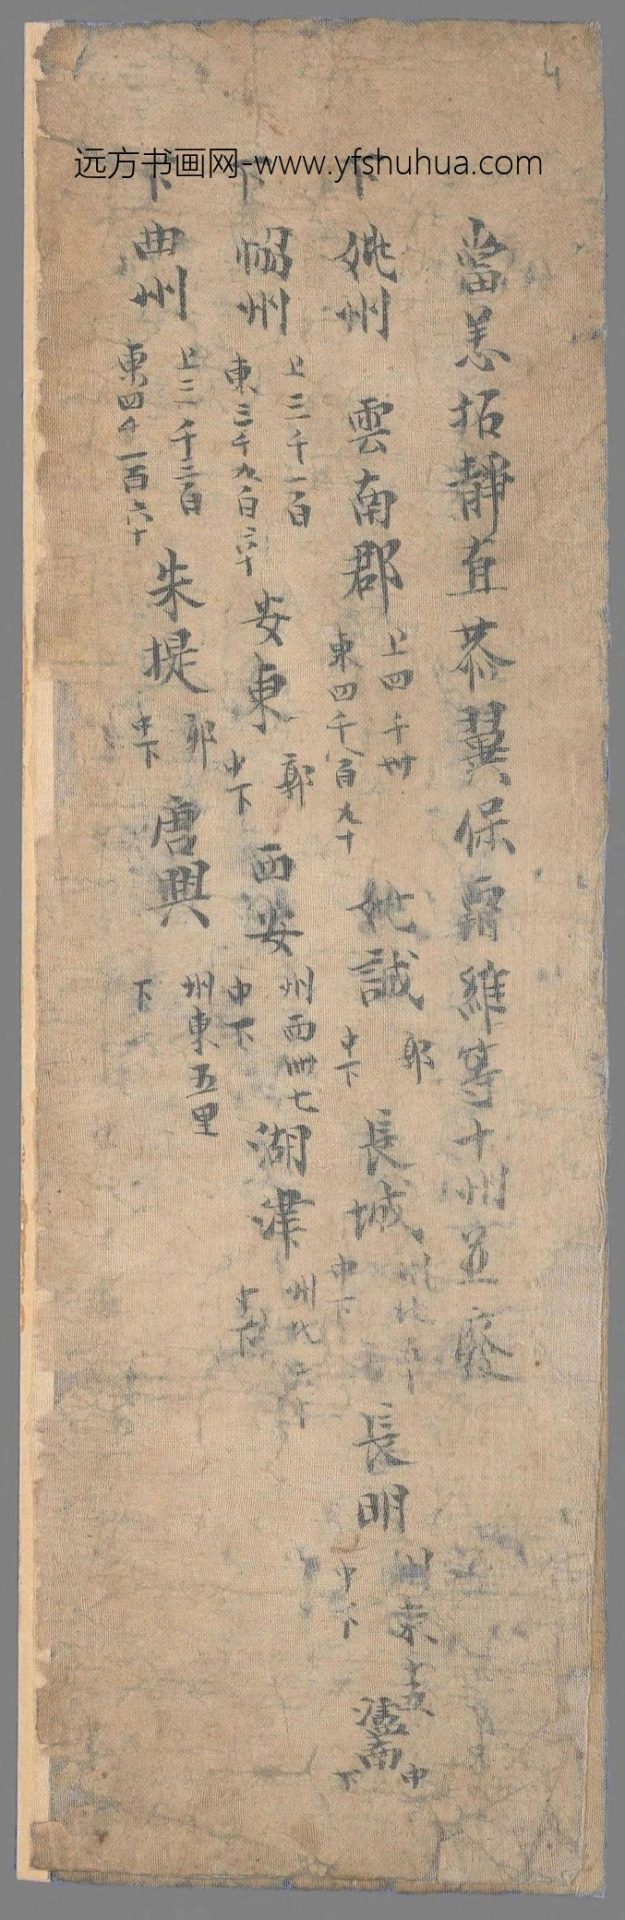 远方书画网-www.yfshuhua.com
4
當悉拓靜直恭翼保霸維等十州並廢
下 姚州 雲南郡 上四千卅 東四千八百九十 姚誠 郭 中下 長城 州北五十 中下 長明 州東 中下 瀘南 中下
下 州 上三千一百 東三千九百六十 安東 郭 中下 西安 州西卌七 中下 湖津 州北六十
下 曲州 上三千二百 東四千一百六十 朱堤 郭 中下 唐興 州東五里 下